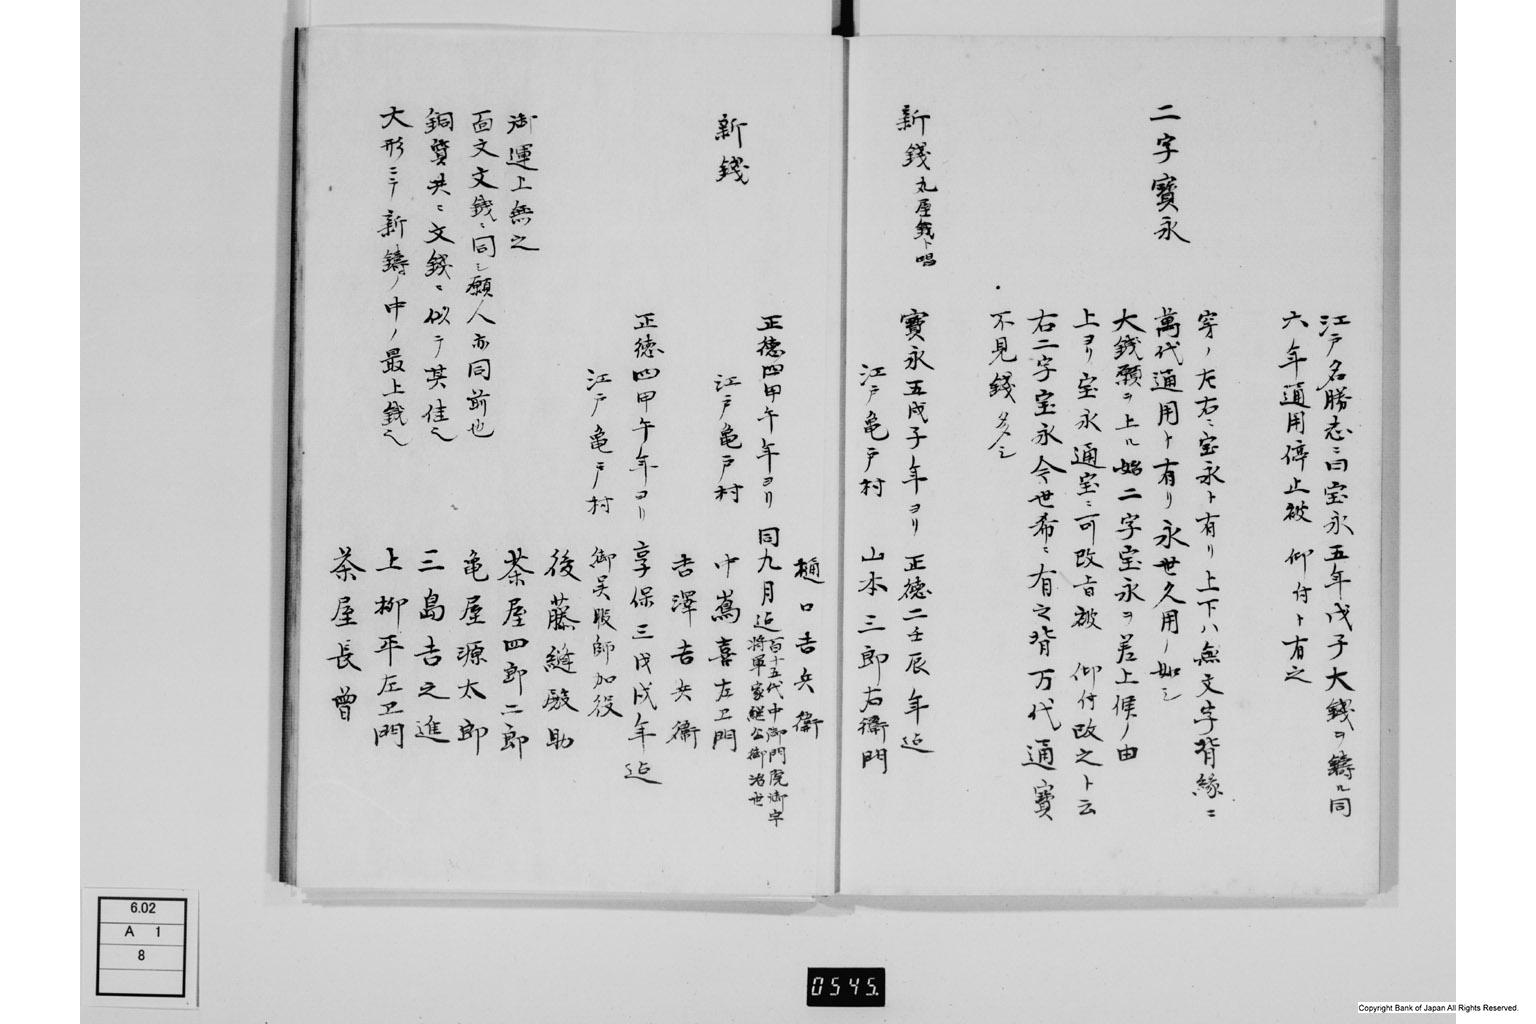 江戸名勝志ニ曰宝永五年戊子大銭ヲ鋳ル同
六年通用停止被 仰付ト有之
二字寳永
穿ノ左右ニ宝永ト有リ上下ハ無文字背縁ニ
萬代通用ト有リ永世久用ノ如シ
大銭願ヲ上ル始二字宝永ヲ差上候ノ由
上ヨリ宝永通宝ニ可改旨被 仰付改之ト云
右二字宝永今世希ニ有之背万代通寳
不見銭多シ
新錢丸屋銭ト唱 寳永五戊子年ヨリ 正徳二壬辰年迄
江戸亀戸村 山本三郎右衛門
樋口吉兵衛
新錢 正徳四甲午年ヨリ 同九月迄 百十五代中御門院御宇 将軍家継公御治世
江戸亀戸村 中嶌喜左エ門
吉澤吉兵衛
正徳四甲午年ヨリ 享保三戊戌年迄
江戸亀戸村 御呉服師加役
後藤縫殿助
御運上無之 茶屋四郎二郎
面文文銭ニ同シ願人亦同前也 亀屋源太郎
銅質共ニ文錢ニ似テ其佳也 三島吉之進
大形ニテ新鑄ノ中ノ最上銭也 上柳平左エ門
茶屋長曽
6.02
A 1
8
0545.
Copyright Bank of Japan All Rights Reserved.